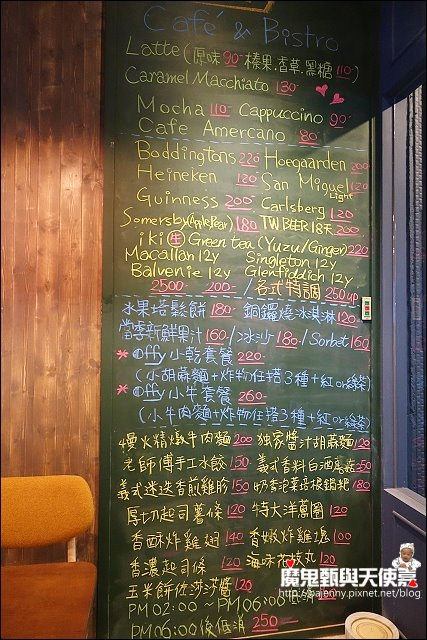 Café & Bistro
Latte (原味 90- 榛果.香草.黑糖 110-)
Caramel Macchiato 130-
Mocha 110- Cappuccino 90-
Cafe Amercano 80-
Boddingtons 220 Hoegaarden 200
Heineken 120 San Miguel Light 120
Guinness 200 Carlsberg 120
Somersby (Apple Pear) 180 TW BEER 18天 200
iki 生 Green tea (Yuzu/Ginger) 220
Macallan 12y Singleton 12y
Balvenie 12y Glenfiddich 12y
2500- 200- / 各式特調 250 up
水果塔鬆餅 180- 銅鑼燒冰淇淋 120
當季新鮮果汁 160- / 冰沙 180 / Sorbet 160
* Offy 小乾套餐 220-
(小胡蔴麵+炸物任搭3種+紅or綠茶)
* Offy 小牛套餐 260-
(小牛肉麵+炸物任搭3種+紅or綠茶)
慢火精燉牛肉麵 200 獨家醬汁胡蔴麵 120
老師傅手工水餃 150 義式香料白酒蘑菇 250
義式迷迭香煎雞肋 150 奶香泡菜培根鍋粑 180
厚切起司薯條 120 特大洋蔥圈 120
香酥炸雞翅 140 香嫩炸雞塊 100
香濃起司條 120 海味花枝丸 120
玉米餅佐莎莎醬 120
PM 02:00 ~ PM 06:00 低消
PM 06:00 後低消 250
魔鬼甄與天使嘉
http://bajenny.pixnet.net/blog